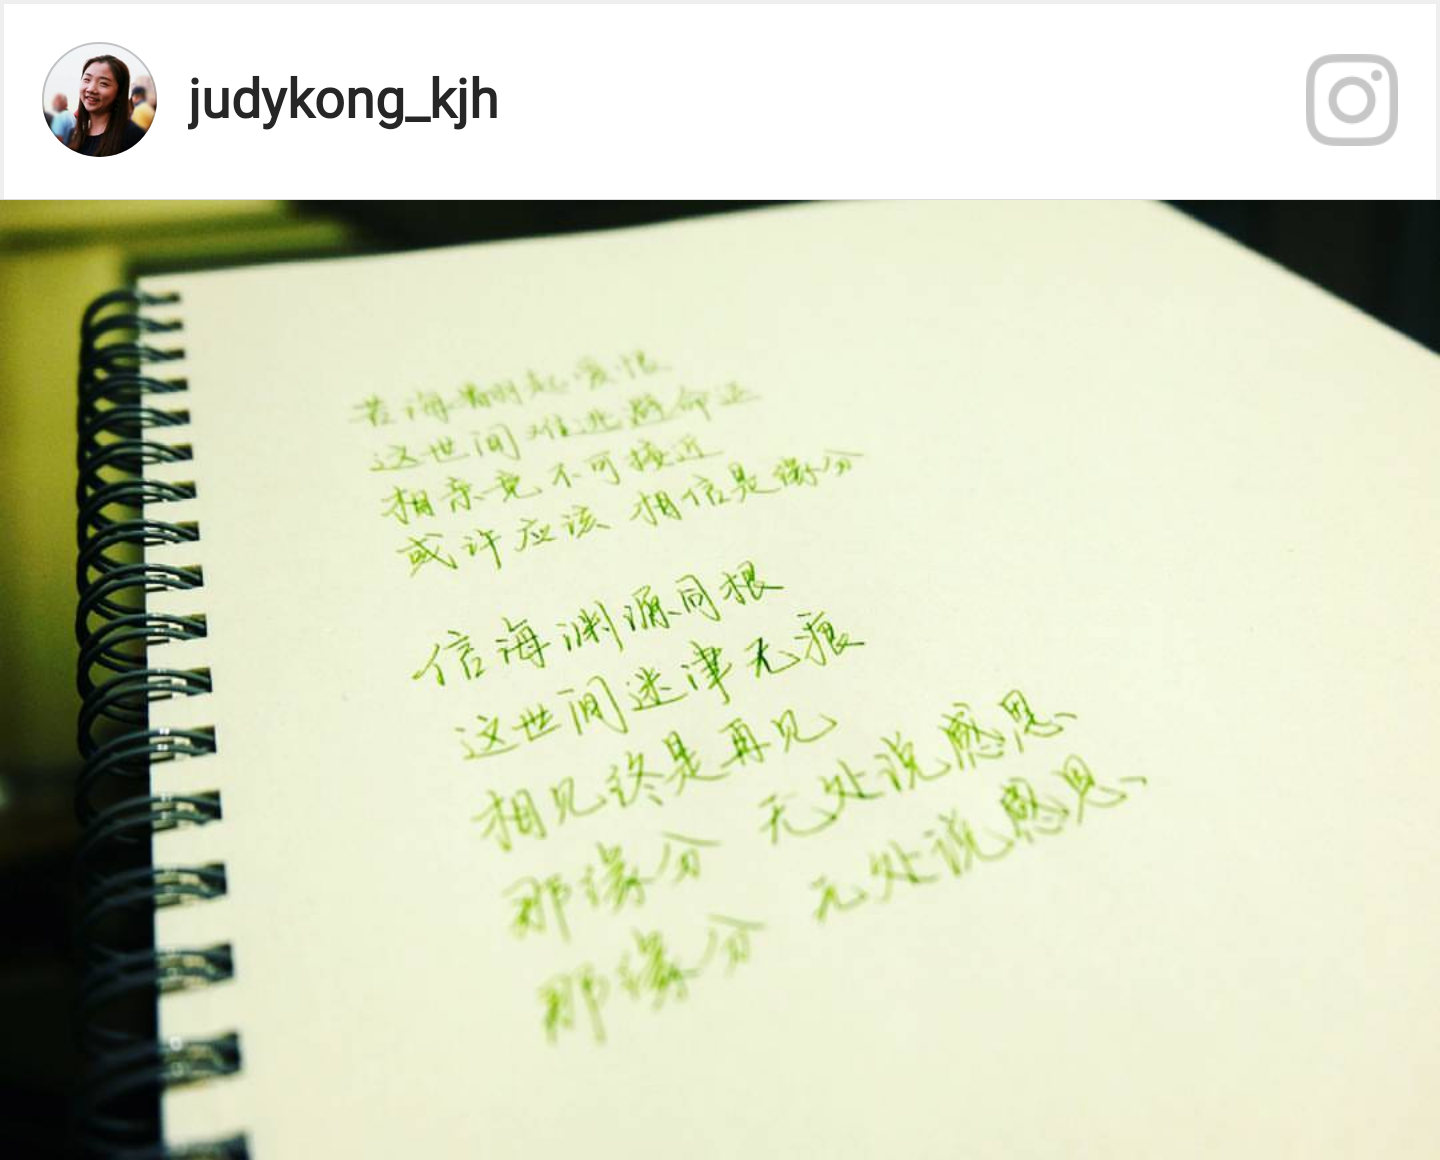 judykong_kjh
苦海翻起爱恨
这世间难逃避命运
相亲竟不可接近
或许应该 相信是缘分
信海渊源同根
这世间迷津无痕
相见终是再见
那缘分 无处说感恩
那缘分 无处说感恩